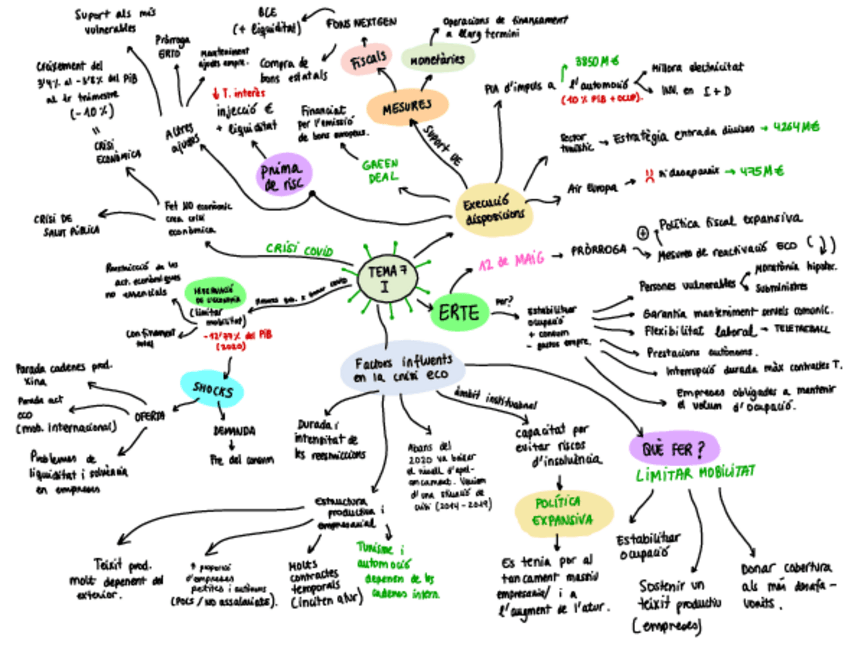 Suport als més
vulnerables
Pròrroga
ERTO
Manteniment
ajuts empre.
BCE
(+ liquiditat)
FONS NEXTGEN
Operacions de finançament
a llarg termini
Fiscals
Monetàries
Compra de
bons estatals
MESURES
Creixement del
al 1r trimestre
(-10%)
=
CRISI
ECONÒMICA
Altres
ajudes
↓ T. interès
injecció €
+ liquiditat
Finançiat
per l'emissió
de bons europeus.
SUPORT DE
Pla d'impuls a
l'automoció
3850 M€
(10% PIB + OCUP.)
Millora electricitat
INV. en I + D
Prima
de risc
GREEN
DEAL
Execució
disposicions
Sector
turístic → Estratègia entrada divises → 4264M€
Air Europa → → 475M€
CRISI DE
SALUT PÚBLICA
Fet NO econòmic
crea crisi
econòmica
CRISI COVID
TEMA 7
I
ERTE
12 de MAIG → PRÒRROGA
+
Política fiscal expansiva
Mesures de reactivació ECO (↓)
Per?
Estabilitzar
ocupació
+ consum
- gastos empre.
Persones vulnerables
Moratòria hipotec.
Subministres
Garantia manteniment serveis comunic.
Flexibilitat laboral → TELETREBALL
Prestacions autònoms.
Interrupció durada màx contractes T.
Empreses obligades a mantenir
el volum d'ocupació.
Restricció de les
act. econòmiques
no essencials
HIBERNACIÓ
DE L'ECONOMIA
(limitar
mobilitat)
Confinament
total
(2020)
Factors influents
en la crisi eco
Parada cadenes prod.
Xina
Parada act
eco
(mob. Internacional)
Problemes de
liquiditat i solvència
en empreses
OFERTA
SHOCKS
DEMANDA
Durada i
intensitat de
les restriccions
Abans del
2020 va baixar
el nivell d'apal-
ancament. Veniem
d'una situació de
crisi (2014-2019)
àmbit institucional
capacitat per
evitar riscos
d'insolvència
POLÍTICA
EXPANSIVA
Es tenia por al
tancament massiu
empresarial i a
l'augment de l'atur.
QUÈ FER?
LIMITAR MOBILITAT
Estabilitzar
ocupació
Sostenir un
teixit productiu
(empreses)
Donar cobertura
als més desafa-
vorits.
Estructura
productiva i
empresarial
Teixit prod.
molt depenent del
exterior.
↑ proporció
d'empreses
petites i autònoms
(Pocs / NO assalariats).
Molts
contractes
temporals
(inciten atur)
Turisme i
automoció
depenen de les
cadenes intern.